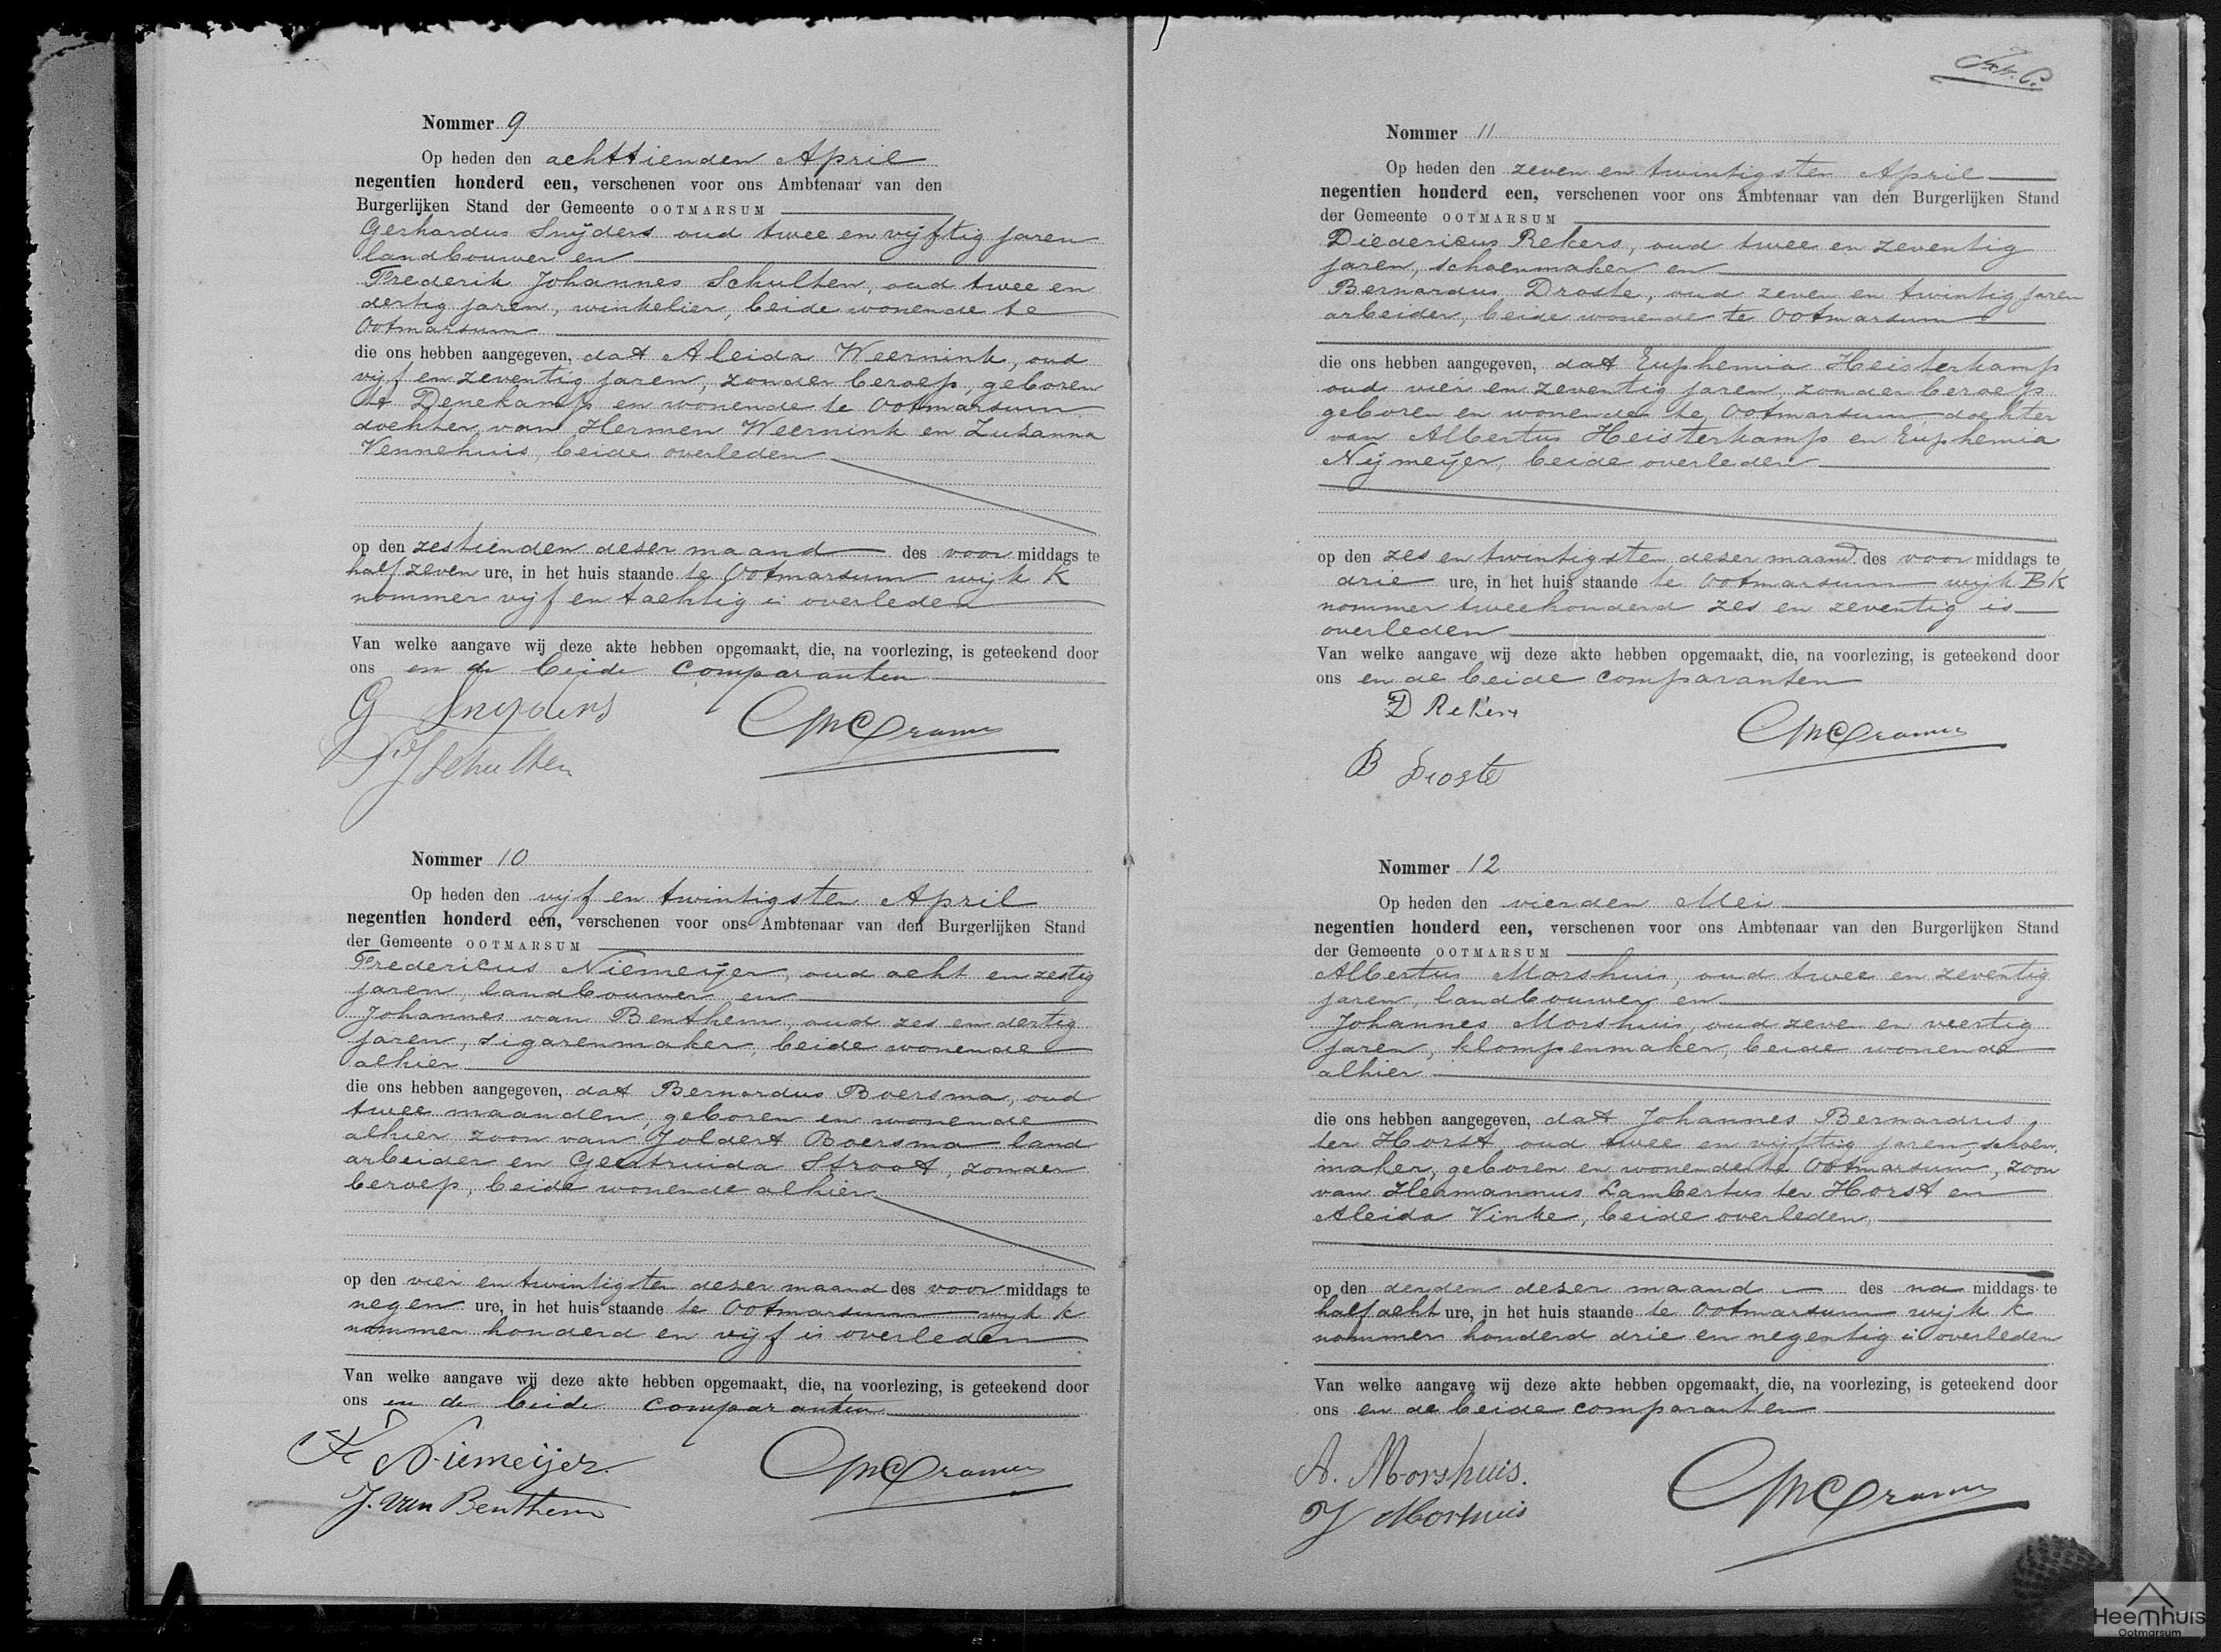 Nommer 9
Op heden den achttienden April
negentien honderd een, verschenen voor ons Ambtenaar van den
Burgerlijken Stand der Gemeente OOTMARSUM
Gerhardus Snijders oud twee en vijftig jaren
landbouwer en
Frederik Johannes Schulten, oud twee en
dertig jaren, winkelier, beide wonende te
Ootmarsum
die ons hebben aangegeven, dat Aleida Weernink, oud
vijf en zeventig jaren, zonder beroep, geboren
te Denekamp en wonende te Ootmarsum
dochter van Hermen Weernink en Zuzanna
Vennehuis, beide overleden
op den zestienden dezer maand des voor middags te
half zeven ure, in het huis staande te Ootmarsum wijk K
nommer vijf en tachtig is overleden
Van welke aangave wij deze akte hebben opgemaakt, die, na voorlezing, is geteekend door
ons en de beide comparanten
G Snijders
FJ Schulten
Cramer
Nommer 10
Op heden den vijf en twintigsten April
negentien honderd een, verschenen voor ons Ambtenaar van den Burgerlijken Stand
der Gemeente OOTMARSUM
Fredericus Niemeijer, oud acht en zestig
jaren, landbouwer en
Johannes van Benthem, oud zes en dertig
jaren, sigarenmaker, beide wonende
alhier
die ons hebben aangegeven, dat Bernardus Boersma, oud
twee maanden, geboren en wonende
alhier zoon van Joldert Boersma land
arbeider en Geertruida Stroot, zonder
beroep, beide wonende alhier
op den vier en twintigsten dezer maand des voor middags te
negen ure, in het huis staande te Ootmarsum wijk K
nommer honderd en vijf is overleden
Van welke aangave wij deze akte hebben opgemaakt, die, na voorlezing, is geteekend door
ons en de beide comparanten
F Niemeijer
J. van Benthem
Cramer
Nommer 11
Op heden den zeven en twintigsten April
negentien honderd een, verschenen voor ons Ambtenaar van den Burgerlijken Stand
der Gemeente OOTMARSUM
Diedericus Rekers, oud twee en zeventig
jaren, schoenmaker en
Bernardus Droste, oud zeven en twintig jaren
arbeider, beide wonende te Ootmarsum
die ons hebben aangegeven, dat Euphemia Heisterkamp
oud vier en zeventig jaren, zonder beroep
geboren en wonende te Ootmarsum dochter
van Albertus Heisterkamp en Euphemia
Nijmeijer, beide overleden
op den zes en twintigsten dezer maand des voor middags te
drie ure, in het huis staande te Ootmarsum wijk BK
nommer tweehonderd zes en zeventig is
overleden
Van welke aangave wij deze akte hebben opgemaakt, die, na voorlezing, is geteekend door
ons en de beide comparanten
D Rekers
B Droste
Cramer
Nommer 12
Op heden den vierden Mei
negentien honderd een, verschenen voor ons Ambtenaar van den Burgerlijken Stand
der Gemeente OOTMARSUM
Albertus Morshuis, oud twee en zeventig
jaren, landbouwer en
Johannes Morshuis, oud zeven en veertig
jaren, klompenmaker, beide wonende
alhier
die ons hebben aangegeven, dat Johannes Bernardus
ter Horst, oud twee en vijftig jaren, schoen
maker, geboren en wonende te Ootmarsum, zoon
van Hermannus Lambertus ter Horst en
Aleida Vinke, beide overleden,
op den derden dezer maand des na middags te
half acht ure, in het huis staande te Ootmarsum wijk K
nommer honderd drie en negentig is overleden
Van welke aangave wij deze akte hebben opgemaakt, die, na voorlezing, is geteekend door
ons en de beide comparanten
A. Morshuis.
J Morshuis
Cramer
Heemhuis
Ootmarsum